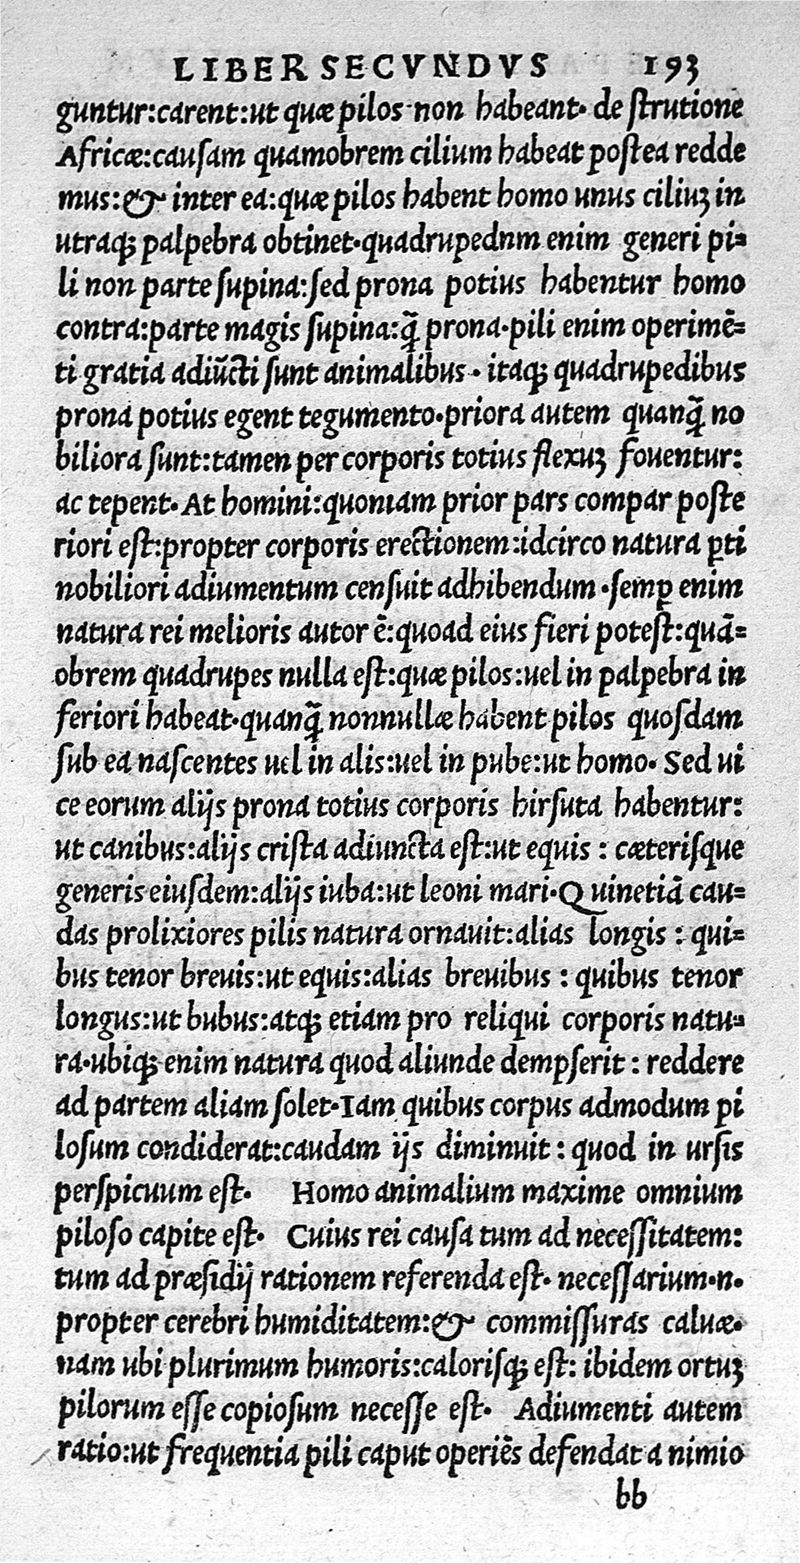 LIBER SECVNDVS 193
guntur:carent:ut quæ pilos non habeant· de ſtrutione
Africæ:cauſam quamobrem cilium habeat poſtea redde
mus:& inter ea:quæ pilos habent homo unus ciliuꝫ in
utraqꝫ palpebra obtinet·quadrupednm enim generi pi-
li non parte ſupina:ſed prona potius habentur homo
contra:parte magis ſupina:q̃ prona·pili enim operimẽ=
ti gratia adiũcti ſunt animalibus· itaqꝫ quadrupedibus
prona potius egent tegumento·priora autem quanq̃ no
biliora ſunt:tamen per corporis totius flexuꝫ fouentur:
ac tepent· At homini:quoniam prior pars compar poſte
riori eſt:propter corporis erectionem:idcirco natura ꝑti
nobiliori adiumentum cenſuit adhibendum ·ſemꝑ enim
natura rei melioris autor ẽ:quoad eius fieri poteſt:quã=
obrem quadrupes nulla eſt:quæ pilos:uel in palpebra in
feriori habeat·quanq̃ nonnullæ habent pilos quoſdam
ſub ea naſcentes uel in alis:uel in pube:ut homo· Sed ui
ce eorum alijs prona totius corporis hirſuta habentur:
ut canibus:alijs criſta adiuncta eſt:ut equis : cæteriſque
generis eiuſdem:alijs iuba:ut leoni mari·Quinetiã cau=
das prolixiores pilis natura ornauit:alias longis : qui=
bus tenor breuis:ut equis:alias breuibus : quibus tenor
longus:ut bubus:atqꝫ etiam pro reliqui corporis natu-
ra·ubiqꝫ enim natura quod aliunde dempſerit : reddere
ad partem aliam ſolet·Iam quibus corpus admodum pi
loſum condiderat:caudam ijs diminuit : quod in urſis
perſpicuum eſt· Homo animalium maxime omnium
piloſo capite eſt· Cuius rei cauſa tum ad neceſſitatem:
tum ad præſidij rationem referenda eſt· neceſſarium·n·
propter cerebri humiditatem:& commiſſuras caluæ·
nam ubi plurimum humoris:caloriſqꝫ eſt: ibidem ortuꝫ
pilorum eſſe copioſum neceſſe eſt· Adiumenti autem
ratio:ut frequentia pili caput operiẽs defendat a nimio
bb